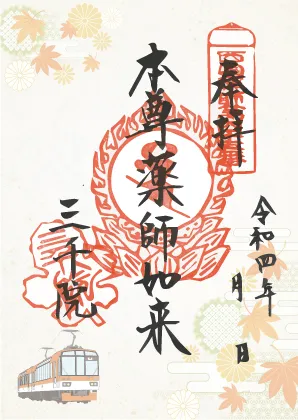 奉拝
令和四年
月 日
本尊薬師如来
三千院